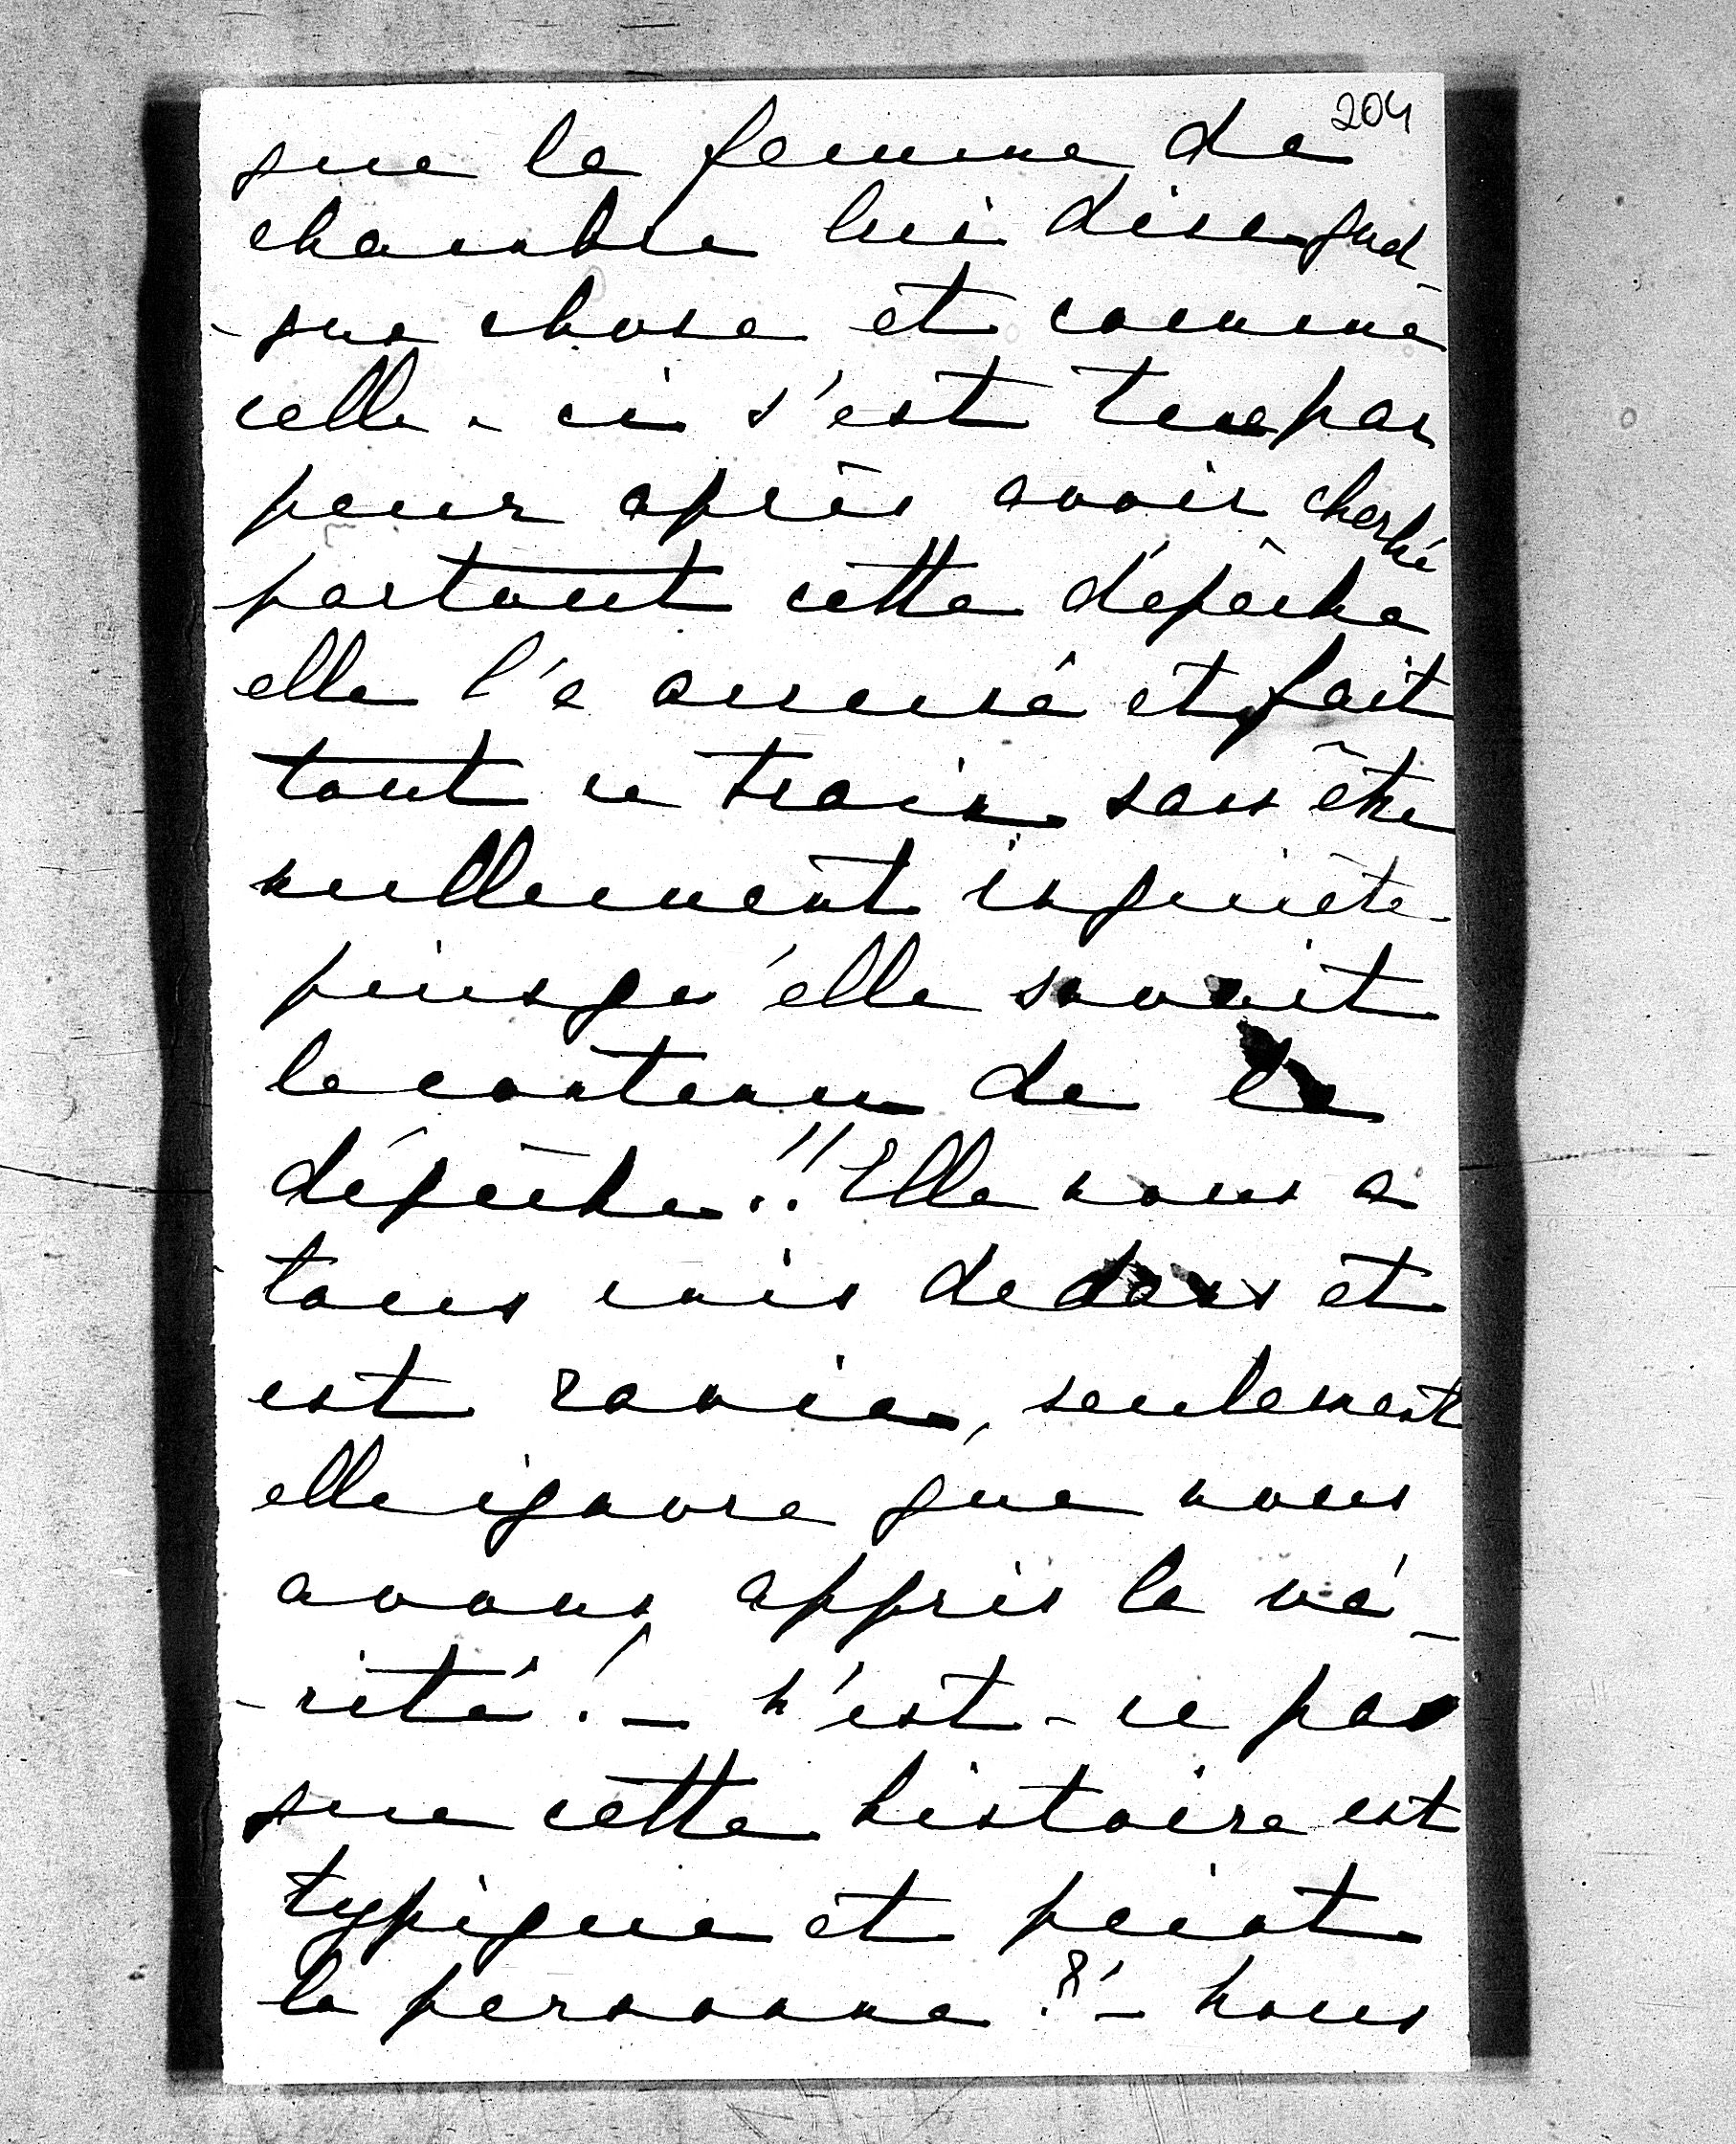 204
que la femme de
chambre lui dise quel-
-que chose et comme
celle-ci s'est tue par
peur après avoir cherché
partout cette dépêche
elle l'a accusé et fait
tout ce train sans être
nullement inquiète
puisqu'elle savait
le contenu de la
dépêche!! Elle nous a
tous mis dedans et
est ravie, seulement
elle ignore que nous
avons appris la vé-
-rité! — N'est-ce pas
que cette histoire est
typique et peint
la personne?! — Nous